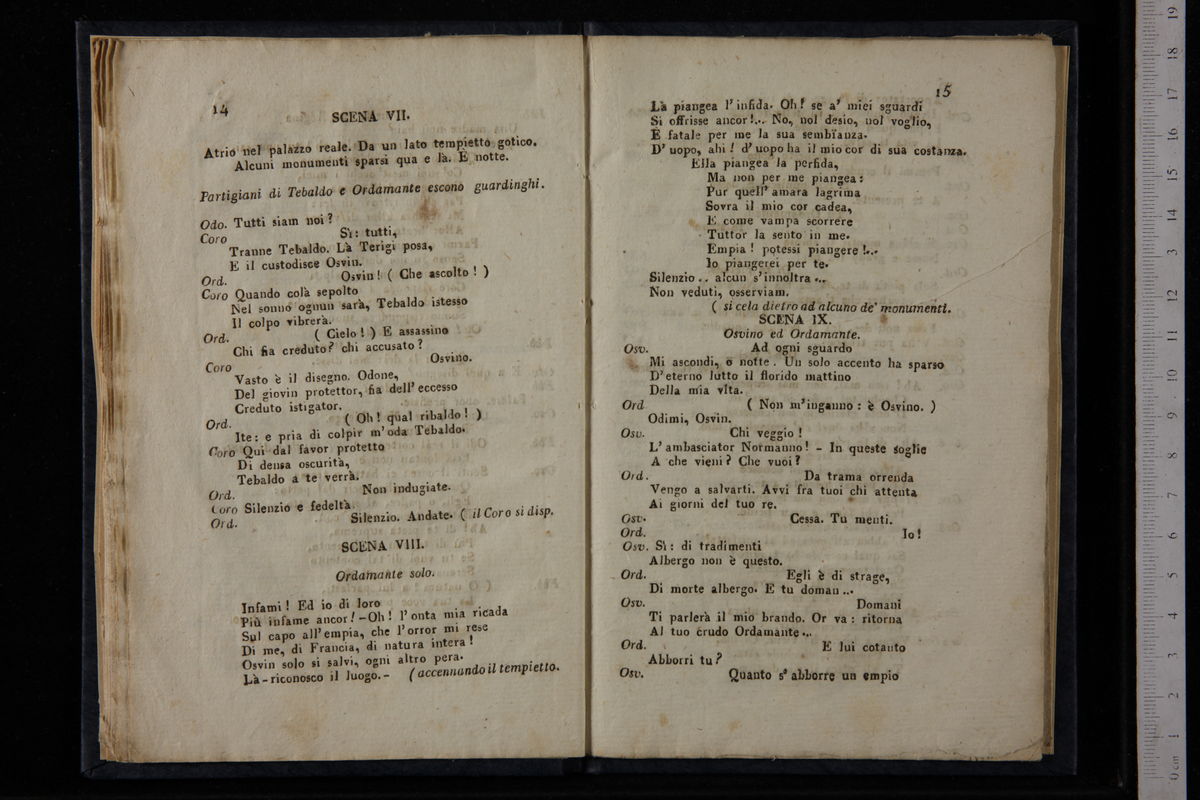 14
SCENA VII.
Atrio nel palazzo reale. Da un lato tempietto gotico.
Alcuni monumenti sparsi qua e là. È notte.
Partigiani di Tebaldo e Ordamante escono guardinghi.
Odo. Tutti siam noi?
Coro Sì: tutti,
Tranne Tebaldo. Là Terigi posa,
E il custodisce Osvin.
Ord. Osvin! ( Che ascolto! )
Coro Quando colà sepolto
Nel sonno ognun sarà, Tebaldo istesso
Il colpo vibrerà.
Ord. ( Cielo! ) E assassino
Chi fia creduto? chi accusato?
Coro Osvino.
Vasto è il disegno. Odone,
Del giovin protettor, fia dell' eccesso
Creduto istigator.
Ord. ( Oh! qual ribaldo! )
Ite: e pria di colpir m' oda Tebaldo.
Coro Qui dal favor protetto
Di densa oscurità,
Tebaldo a te verrà.
Ord. Non indugiate.
Coro Silenzio e fedeltà.
Ord. Silenzio. Andate. ( il Coro si disp.
SCENA VIII.
Ordamante solo.
Infami! Ed io di loro
Più infame ancor! - Oh! l' onta mia ricada
Sul capo all' empia, che l' orror mi rese
Di me, di Francia, di natura intera!
Osvin solo si salvi, ogni altro pera.
Là - riconosco il luogo. - ( accennando il tempietto.
15
Là piangea l' infida. Oh! se a' miei sguardi
Si offrisse ancor!... No, nol desio, nol voglio,
È fatale per me la sua sembianza.
D' uopo, ahi! d' uopo ha il mio cor di sua costanza.
Ella piangea la perfida,
Ma non per me piangea:
Pur quell' amara lagrima
Sovra il mio cor cadea,
E come vampa scorrere
Tuttor la sento in me.
Empia! potessi piangere!...
Io piangerei per te.
Silenzio .. alcun s' innoltra ...
Non veduti, osserviam.
( si cela dietro ad alcuno de' monumenti.
SCENA IX.
Osvino ed Ordamante.
Osv. Ad ogni sguardo
Mi ascondi, o notte. Un solo accento ha sparso
D' eterno lutto il florido mattino
Della mia vita.
Ord ( Non m' inganno: è Osvino. )
Odimi, Osvin.
Osv. Chi veggio!
L' ambasciator Normanno! - In queste soglie
A che vieni? Che vuoi?
Ord. Da trama orrenda
Vengo a salvarti. Avvi fra tuoi chi attenta
Ai giorni del tuo re.
Osv. Cessa. Tu menti.
Ord. Io!
Osv. Sì: di tradimenti
Albergo non è questo.
Ord. Egli è di strage,
Di morte albergo. E tu doman ...
Osv. Domani
Ti parlerà il mio brando. Or va: ritorna
Al tuo crudo Ordamante ...
Ord. E lui cotanto
Abborri tu?
Osv. Quanto s' abborre un empio